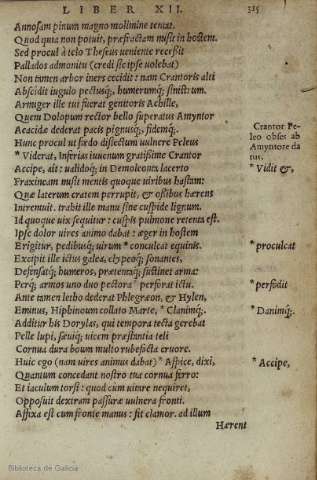 LIBER XII.
315
Annosam pinum magno molimine tentat.
Quod quia non potuit, præfractam misit in hostem.
Sed procul à telo Theseus ueniente recessit
Pallados admonitu (credi sic ipse uolebat)
Non tamen arbor iners cecidit: nam Crantoris alti
Abscidit iugulo pectusq́;, humerumq́; sinistrum.
Armiger ille tui fuerat genitoris Achille,
Quem Dolopum rector bello superatus Amyntor
Aeacidæ dederat pacis pignusq́;, fidemq́;.
Hunc procul ut fœdo disiectum uulnere Peleus
* Viderat, Inferias iuuenum gratissime Crantor
Accipe, ait: ualidoq́; in Demoleonta lacerto
Fraxineam misit mentis quoque uiribus hastam:
Quæ laterum cratem perrupit, & ossibus hærens
Intremuit. trahit ille manu sine cuspide lignum.
Id quoque uix sequitur: cuspis pulmone retenta est.
Ipse dolor uires animo dabat: æger in hostem
Erigitur, pedibusq́; uirum * conculcat equinis.
Excipit ille ictus galea, clypeoq́; sonantes,
Defensatq́; humeros, prætentaq́; sustinet arma:
Perq́; armos uno duo pectora * perforat ictu.
Ante tamen letho dederat Phlegræon, & Hylen,
Eminus, Hiphinoum collato Marte, * Claninq́;.
Additur his Dorylas, qui tempora tecta gerebat
Pelle lupi, sæuiq́; uicem præstantia teli
Cornua dura boum multo rubefacta cruore.
Huic ego (nam uires animus dabat) * Aspice, dixi,
Quantum concedant nostro tua cornua ferro:
Et iaculum torsi: quod cùm uitare nequiret,
Opposuit dextram passuræ uulnera fronti.
Affixa est cum fronte manus: fit clamor. at illum
Hærent
Crantor Pe-
leo obses ab
Amyntore da
tus.
* Vidit &,
* proculcat
* perfodit
* Danimq́;.
* Accipe,
Biblioteca de Galicia